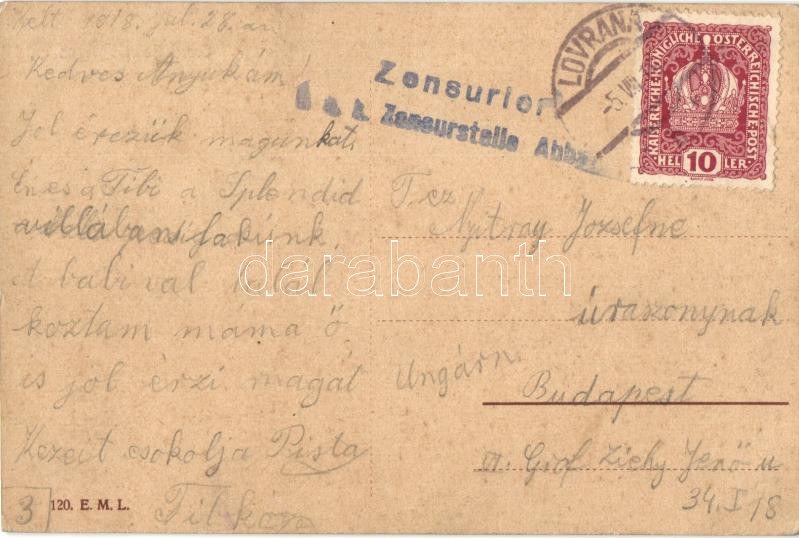 Kelt 1918. jul. 28.-án
Kedves Anyukám!
Jol érezük magunkat.
Én és a Tibi a Splendid
villában lakúnk.
A babi val talál
koztam máma ő
is jol érzi magát
Kezeit csokolja Pista
3
120. E. M. L.
Zensuriert
k. u. k. Zensurstelle Abba
LOVRANA
-5. VII
KAISERLICHE KÖNIGLICHE ÖSTERREICHISCHE POST
HEL 10 LER
Nyitray Jozsefné
úraszonynak
Ungárn
Budapest
Gróf Zichy Jenő u
34. I/8
darabanth